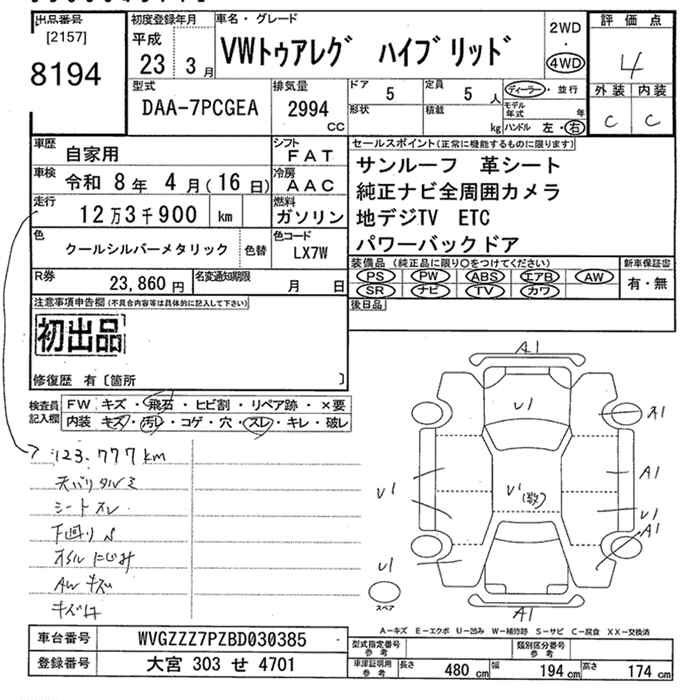 出品番号
[2157]
8194
初度登録年月
平成
23 3月
車名・グレード
VWトゥアレグ ハイブリッド
2WD
・
4WD
評価点
4
外装 内装
C C
型式
DAA-7PCGEA
排気量
2994
CC
ドア
5
定員
5 人
形状
積載
kg
ディーラー・並行
モデル年式 年
ハンドル 左・右
車歴
自家用
シフト
FAT
車検
令和 8年 4月(16日)
冷房
AAC
走行
12万3千900 km
燃料
ガソリン
色
クールシルバーメタリック
色替
色コード
LX7W
R券
23,860円
名変通知期限
月 日
セールスポイント(正常に機能するものに限ります)
サンルーフ 革シート
純正ナビ全周囲カメラ
地デジTV ETC
パワーバックドア
装備品(純正品に限り○をつけてください)
PS PW ABS エアB AW
SR ナビ TV カワ
新車保証書
有・無
後日品
注意事項申告欄(不具合内容等は具体的に記入して下さい)
初出品
修復歴 有〔箇所 〕
検査員
記入欄
FW キズ・飛石・ヒビ割・リペア跡・×要
内装 キズ・汚レ・コゲ・穴・スレ・キレ・破レ
123.777km
天バリタルミ
シートスレ
下廻りS
オイルにじみ
AWキズ
A1
U1
A1
U1
U1
A1
U1
A1
U1
A1
スペア
A-キズ E-エクボ U-凹み W-補修跡 S-サビ C-腐食 XX-交換済
車台番号
WVGZZZ7PZBD030385
登録番号
大宮 303 せ 4701
型式指定番号
参考
類別区分番号
参考
車庫証明用
参考
長さ 480 cm
幅 194 cm
高さ 174 cm